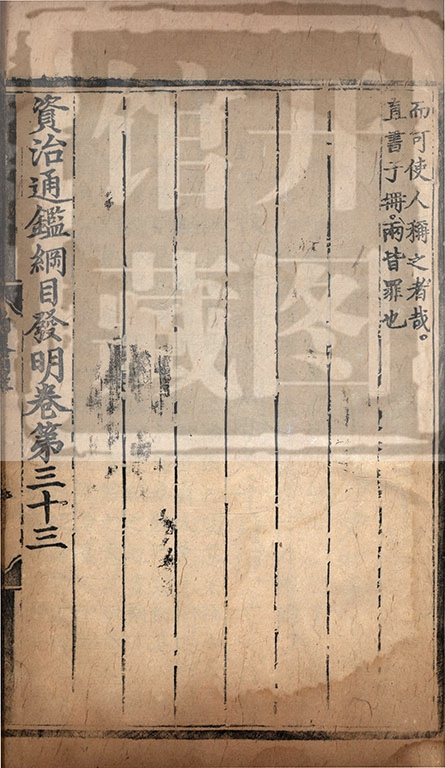 而可使人稱之者哉。
直書于冊。兩皆罪也
資治通鑑綱目發明卷第三十三